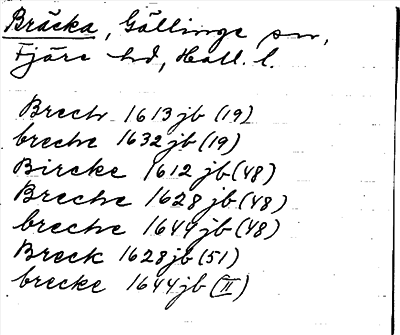 Bräcka, Gällinge sn,
Fjäre hd, Hall. l.
Brechr 1613 jb (19)
breche 1632 jb (19)
Bircke 1612 jb (48)
Breche 1628 jb (48)
breche 1644 jb (48)
Breck 1628 jb (51)
brecke 1644 jb (II)